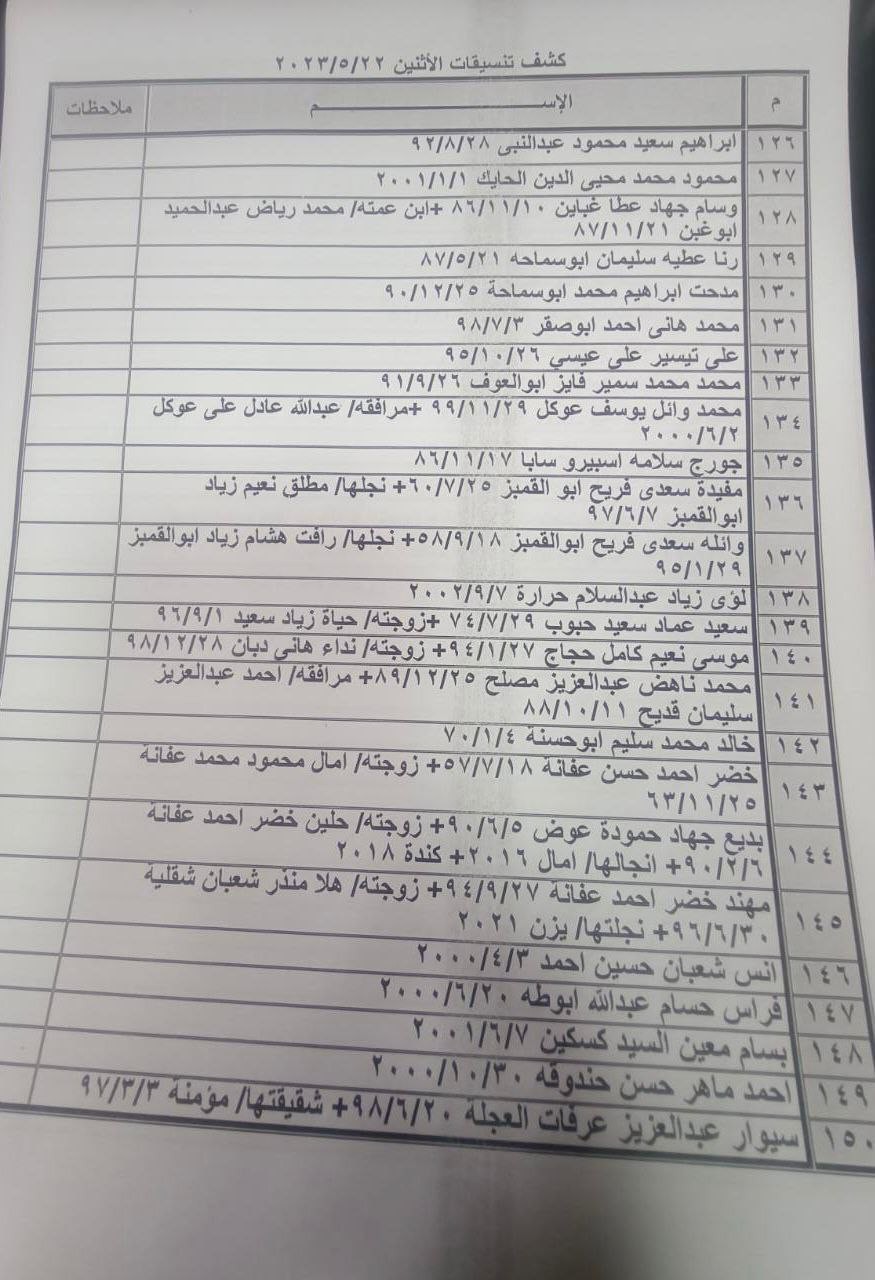 كشف تنسيقات الأثنين ٢٠٢٣/٥/٢٢
م الإســـــــــم ملاحظات
١٢٦ ابراهيم سعيد محمود عبدالنبى ٩٢/٨/٢٨
١٢٧ محمود محمد محيى الدين الحايك ٢٠٠١/١/١
١٢٨ وسام جهاد عطا غباين ٨٦/١١/١٠ +ابن عمته/ محمد رياض عبدالحميد
ابوغبن ٨٧/١١/٢١
١٢٩ رنا عطيه سليمان ابوسماحه ٨٧/٥/٢١
١٣٠ مدحت ابراهيم محمد ابوسماحة ٩٠/١٢/٢٥
١٣١ محمد هانى احمد ابوصقر ٩٨/٧/٣
١٣٢ على تيسير على عيسي ٩٥/١٠/٢٦
١٣٣ محمد محمد سمير فايز ابوالعوف ٩١/٩/٢٦
١٣٤ محمد وائل يوسف عوكل ٩٩/١١/٢٩ +مرافقه/ عبدالله عادل على عوكل
٢٠٠٠/٦/٢
١٣٥ جورج سلامه اسبيرو سابا ٨٦/١١/١٧
١٣٦ مفيدة سعدى فريح ابو القمبز ٦٠/٧/٢٥+ نجلها/ مطلق نعيم زياد
ابوالقمبز ٩٧/٦/٧
١٣٧ وائله سعدى فريح ابوالقمبز ٥٨/٩/١٨+ نجلها/ رافت هشام زياد ابوالقمبز
٩٥/١/٢٩
١٣٨ لؤى زياد عبدالسلام حرارة ٢٠٠٢/٩/٧
١٣٩ سعيد عماد سعيد حبوب ٧٤/٧/٢٩ +زوجته/ حياة زياد سعيد ٩٦/٩/١
١٤٠ موسى نعيم كامل حجاج ٩٤/١/٢٧+ زوجته/ نداء هانى دبان ٩٨/١٢/٢٨
١٤١ محمد ناهض عبدالعزيز مصلح ٨٩/١٢/٢٥+ مرافقه/ احمد عبدالعزيز
سليمان قديح ٨٨/١٠/١١
١٤٢ خالد محمد سليم ابوحسنة ٧٠/١/٤
١٤٣ خضر احمد حسن عفانة ٥٧/٧/١٨+ زوجته/ امال محمود محمد عفانة
٦٣/١١/٢٥
١٤٤ بديع جهاد حمودة عوض ٩٠/٦/٥+ زوجته/ حلين خضر احمد عفانة
٩٠/٢/٦+ انجالها/ امال ٢٠١٦+ كندة ٢٠١٨
١٤٥ مهند خضر احمد عفانة ٩٤/٩/٢٧+ زوجته/ هلا منذر شعبان شقلية
٩٦/٦/٣٠+ نجلتها/ يزن ٢٠٢١
١٤٦ انس شعبان حسين احمد ٢٠٠٠/٤/٣
١٤٧ فراس حسام عبدالله ابوطه ٢٠٠٠/٦/٢٠
١٤٨ بسام معين السيد كسكين ٢٠٠١/٦/٧
١٤٩ احمد ماهر حسن حندوقه ٢٠٠٠/١٠/٣٠
١٥٠ سيوار عبدالعزيز عرفات العجلة ٩٨/٦/٢٠+ شقيقتها/ مؤمنة ٩٧/٣/٣